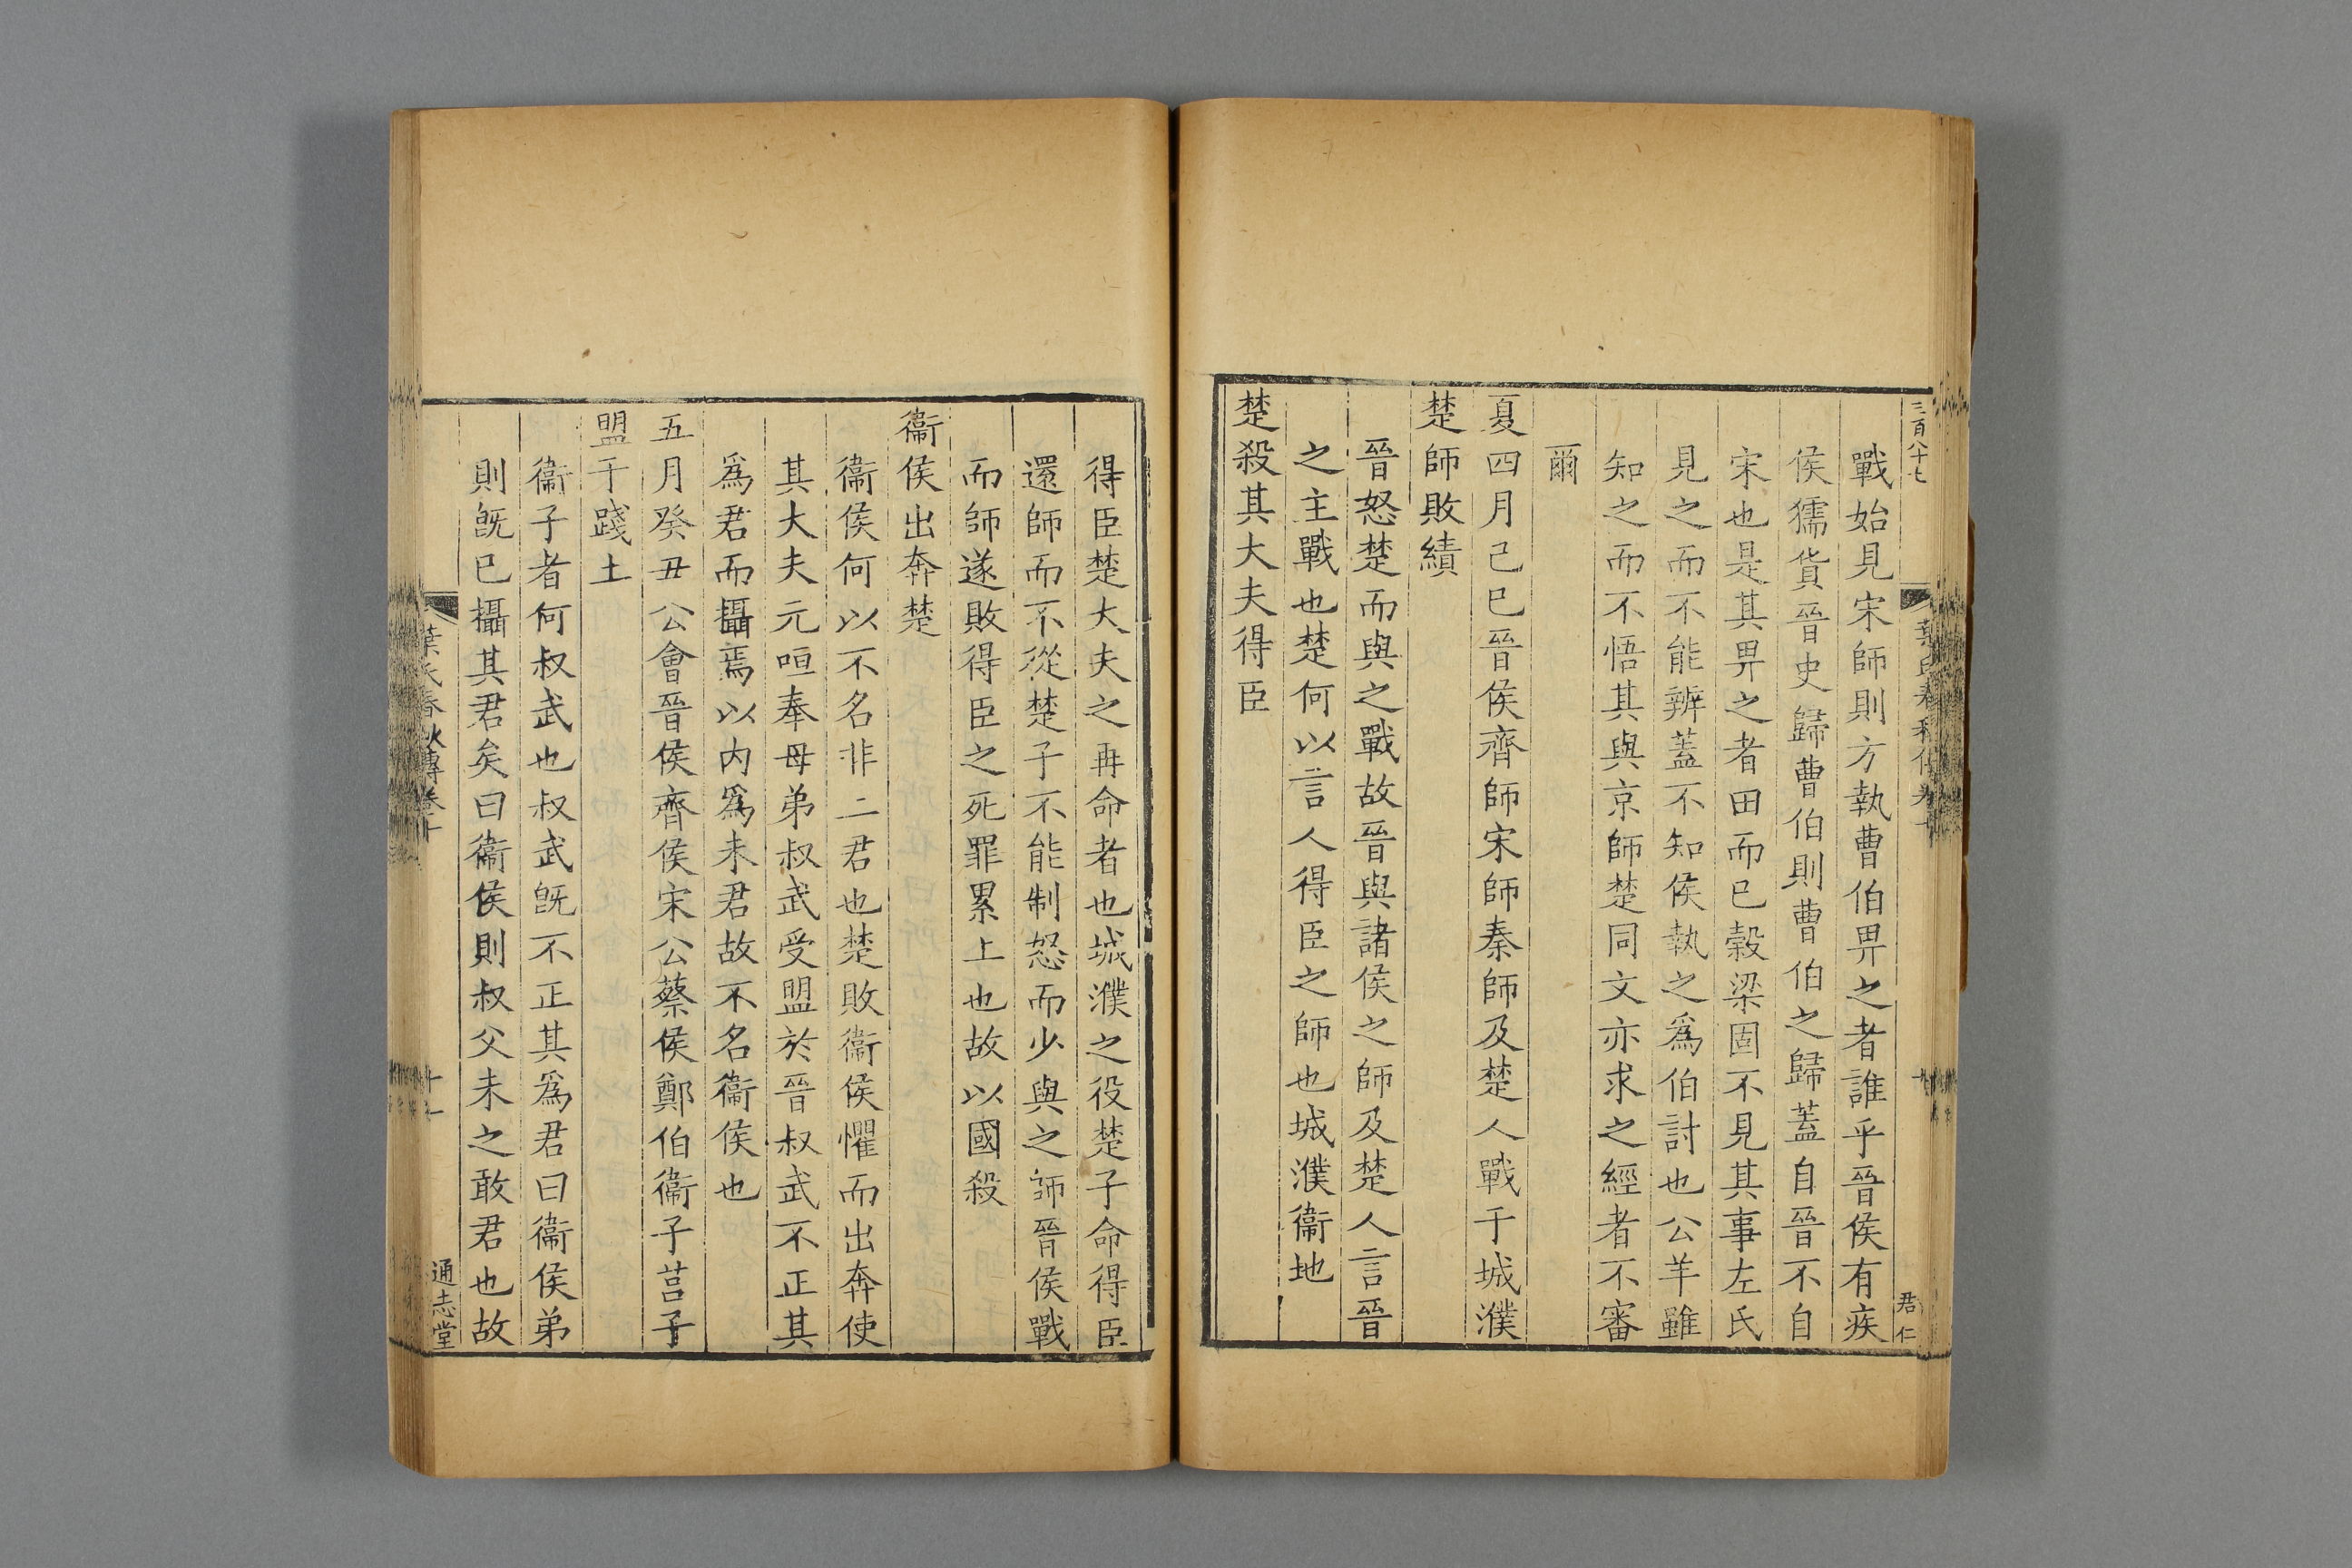 三百八十七
戰始見宋師則方執曹伯畀之者誰乎晉侯有疾
侯獳貨晉史歸曹伯則曹伯之歸蓋自晉不自
宋也是其畀之者田而已穀梁固不見其事左氏
見之而不能辨蓋不知侯執之爲伯討也公羊雖
知之而不悟其與京師楚同文亦求之經者不審
爾
夏四月己巳晉侯齊師宋師秦師及楚人戰于城濮
楚師敗績
晉怒楚而與之戰故晉與諸侯之師及楚人言晉
之主戰也楚何以言人得臣之師也城濮衞地
楚殺其大夫得臣
君仁
得臣楚大夫之再命者也城濮之役楚子命得臣
還師而不從楚子不能制怒而少與之師晉侯戰
而師遂敗得臣之死罪累上也故以國殺
衞侯出奔楚
衞侯何以不名非二君也楚敗衞侯懼而出奔使
其大夫元咺奉母弟叔武受盟於晉叔武不正其
爲君而攝焉以内爲未君故不名衞侯也
五月癸丑公會晉侯齊侯宋公蔡侯鄭伯衞子莒子
盟于踐土
衞子者何叔武也叔武旣不正其爲君曰衞侯弟
則旣已攝其君矣曰衞侯則叔父未之敢君也故
葉氏春秋傳卷十
十一
通志堂